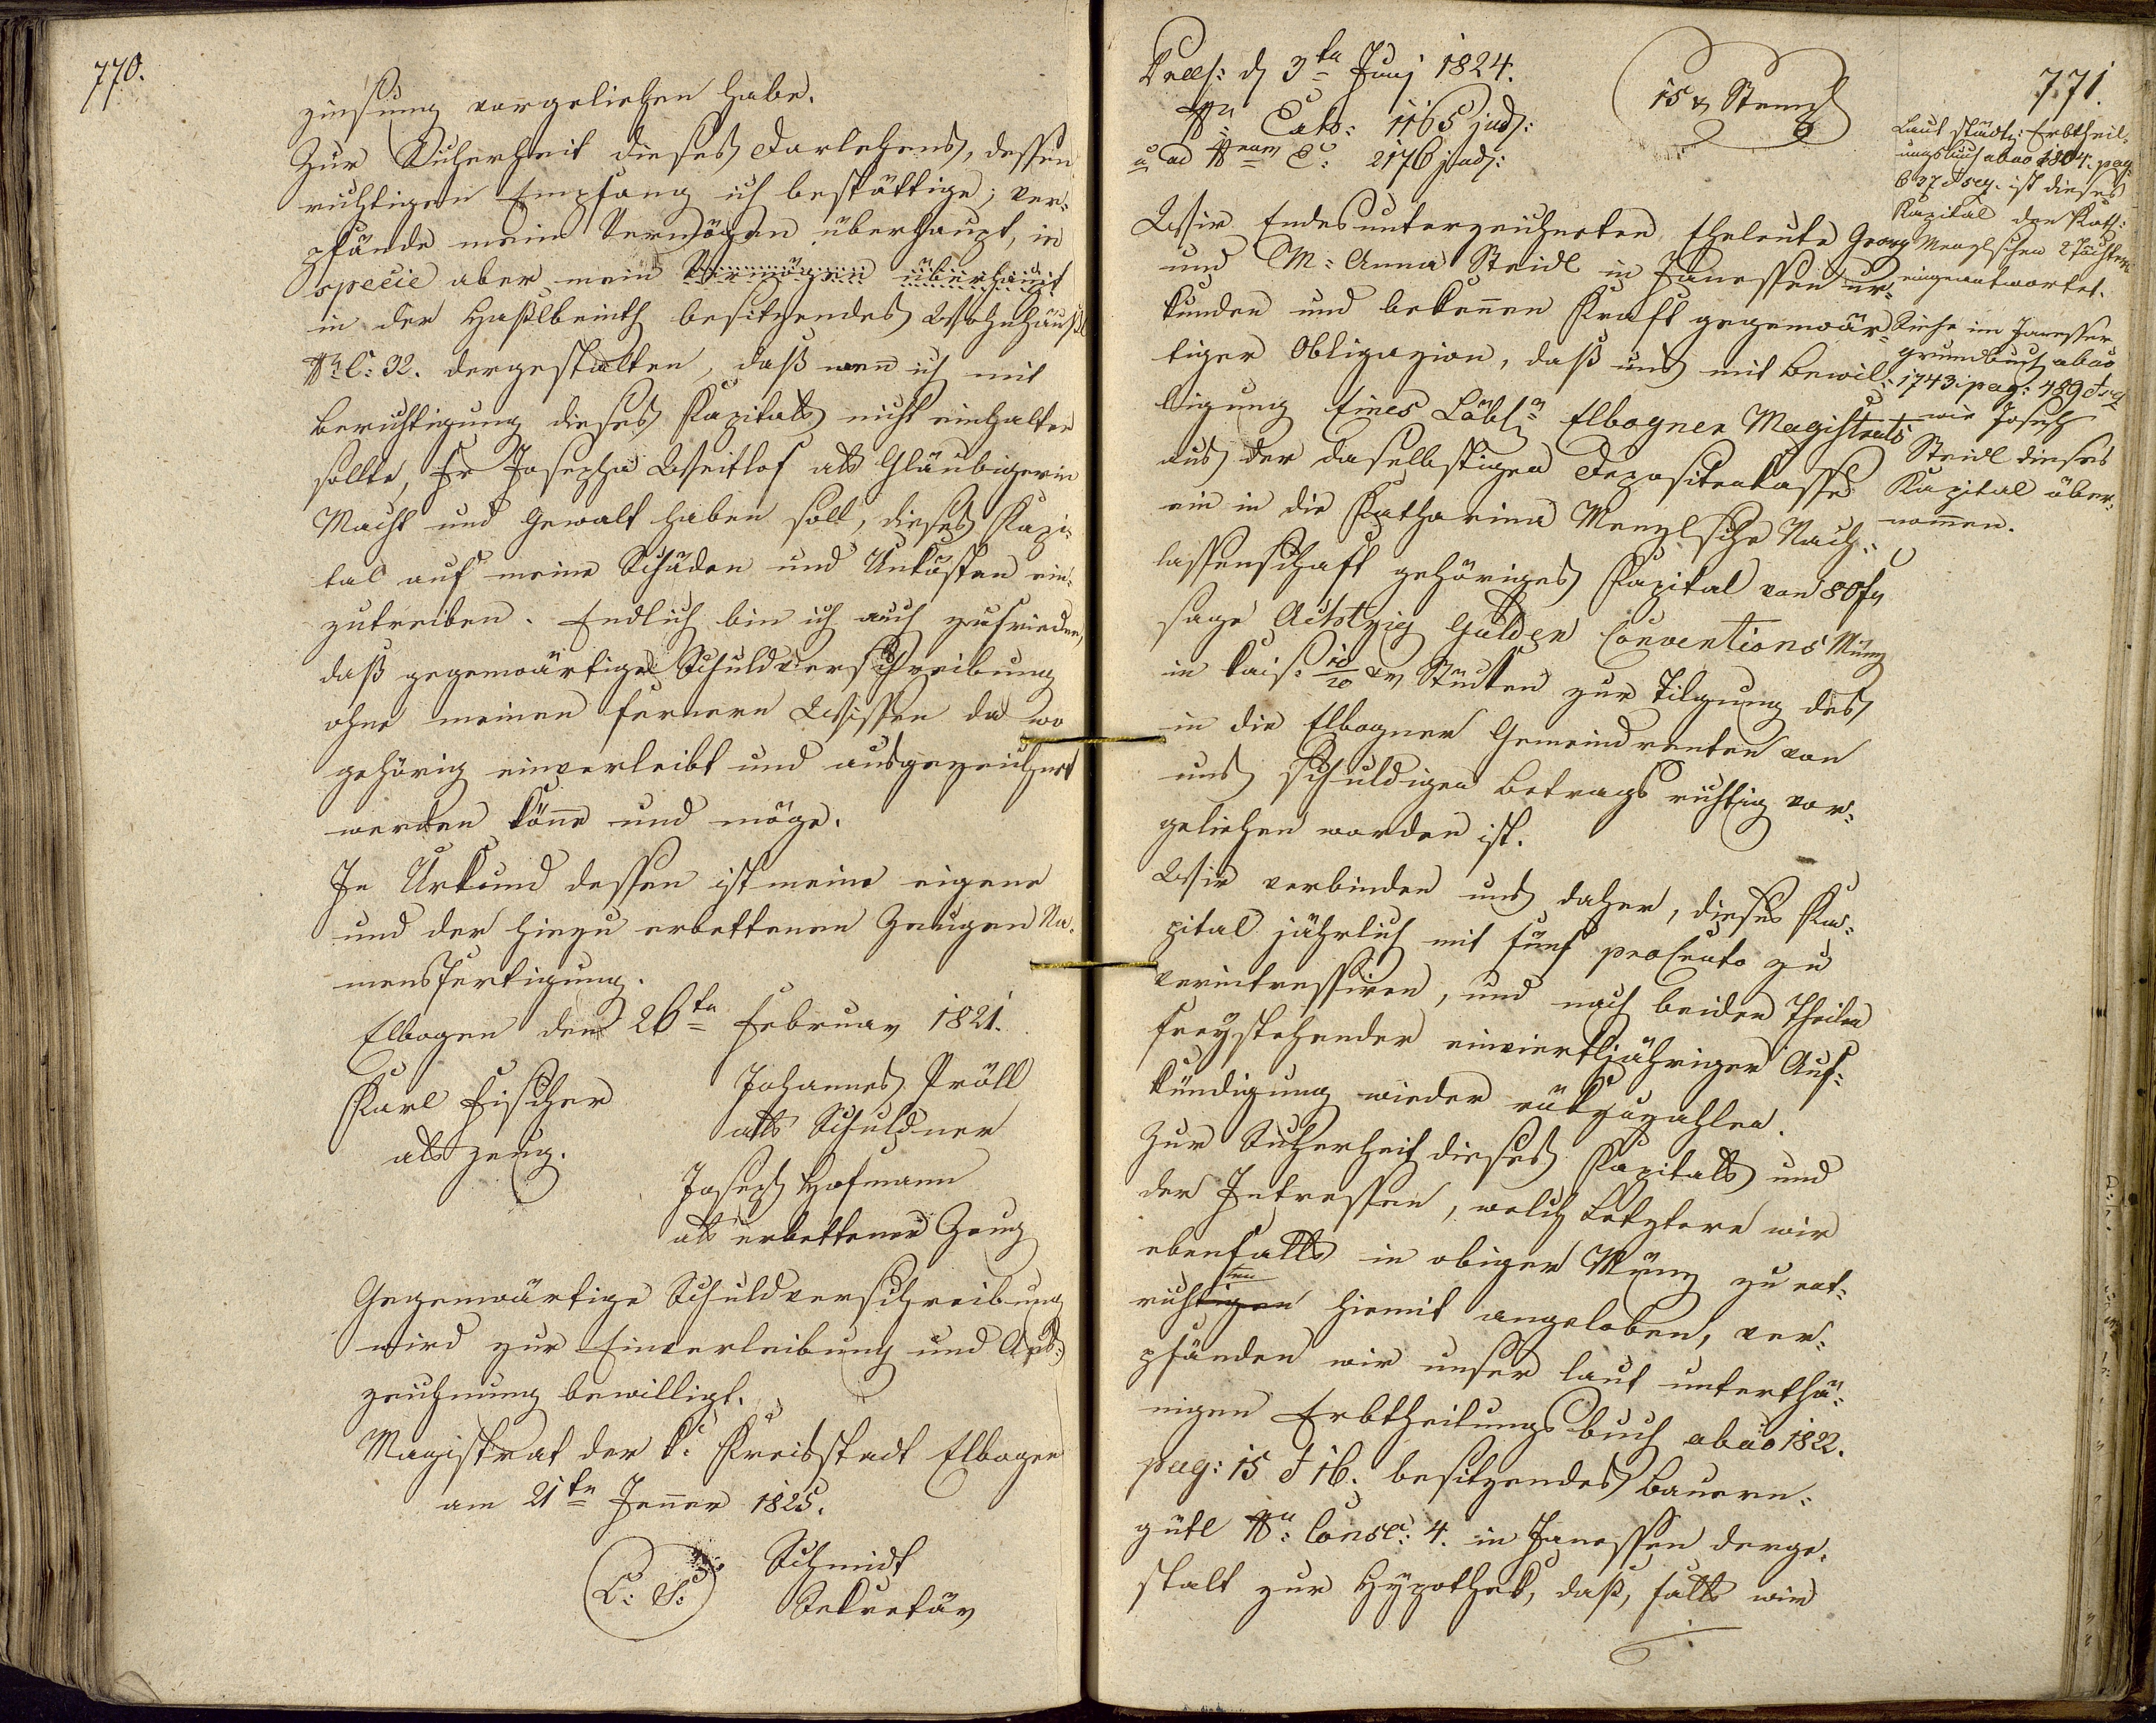 770.
zinsung vorgeliehen habe.
Zur Sicherheit dieses Darlehens, dessen
richtigen Empfang ich bestättige, ver-
pfände mein Vermögen überhaupt, in
specie aber mein Vermögen überhaupt
in der Haßlbeinth besitzendes Wohnhäußl
Nr C: 32. dergestalten, daß wen̄ ich mit
Berichtigung dieses Kapitals nicht einhalten
sollte, Fr Josepha Weitlof als Gläubigerin
Macht und Gewalt haben soll, dieses Kapi-
tal auf meine Schäden und Unkösten ein-
zutreiben. Endlich bin ich auch zufrieden,
daß gegenwärtige Schuldverschreibung
ohne meinen fernern Wissen da wo
gehörig einverleibt und ausgezeichnet
werden kön̄e und möge.
In Urkund dessen ist meine eigene
und der hiezu erbettenen Zeugen Na-
mensfertigung.
Elbogen den 26ten Februar 1821.
Karl Fischer
als Zeug.
Johannes Pröll
als Schuldner
Joseph Hofmann
als erbettener Zeug
Gegenwärtige Schuldverschreibung
wird zur Einverleibung und Aus-
zeichnung bewilligt.
Magistrat der k: Kreisstadt Elbogen
am 21ten Jen̄er 1825.
L: S:
Schmidt
Sekretär
771.
Praes: d 3ten Junj 1824.
Nr Exh: 1165 jud:
a ad Nrum E: 2176 jud:
15 x Stempl
Laut städt: Erbtheil-
ungsbuch abao 1804. pag:
637 & seq. ist dieses
Kapital den Kath:
Menzlschen 2 Töchtern
eingeantwortet.
Siehe im Janesser
grundbuch abao
1743. pag: 489 & seq
wie Joseph
Steidl dieses
Kapital über-
nom̄en.
Wir Endesunterzeichneten Eheleute Georg
und M: Anna Steidl in Janessen ur-
kunden und beken̄en Kraft gegenwär-
tiger Obligazion, daß uns mit Bewil-
ligung Eines Löbl Elbogner Magistrats
aus der daselbstigen Depositenkasse
ein in die Katharina Menzlsche Nach-
lassenschaft gehöriges Kapital von 80 f
sage Achtzig Gulden Conventions Münz
in kais: 10/20 xr Stücken zur Tilgung des
in die Elbogner Gemeindrenten von
uns schuldigen Betrags richtig vor-
geliehen worden ist.
Wir verbinden uns daher, dieses Ka-
pital jährlich mit fünf procento zu
verintressiren, und nach beiden Theilen
freystehender einviertljähriger Auf-
kündigung wieder rükzuzahlen.
Zur Sicherheit dieses Kapitals und
der Intressen, welch Letztere wir
ebenfalls in obiger Münz zu ent-
richtigen ten hiemit angeloben, ver-
pfänden wir unser laut unterthä-
nigen Erbtheilungsbuch abao 1822.
pag: 15 & 16. besitzendes Bauern-
gütl Nr: Consc: 4. in Janessen derge-
stalt zur Hypothek, daß, falls wir